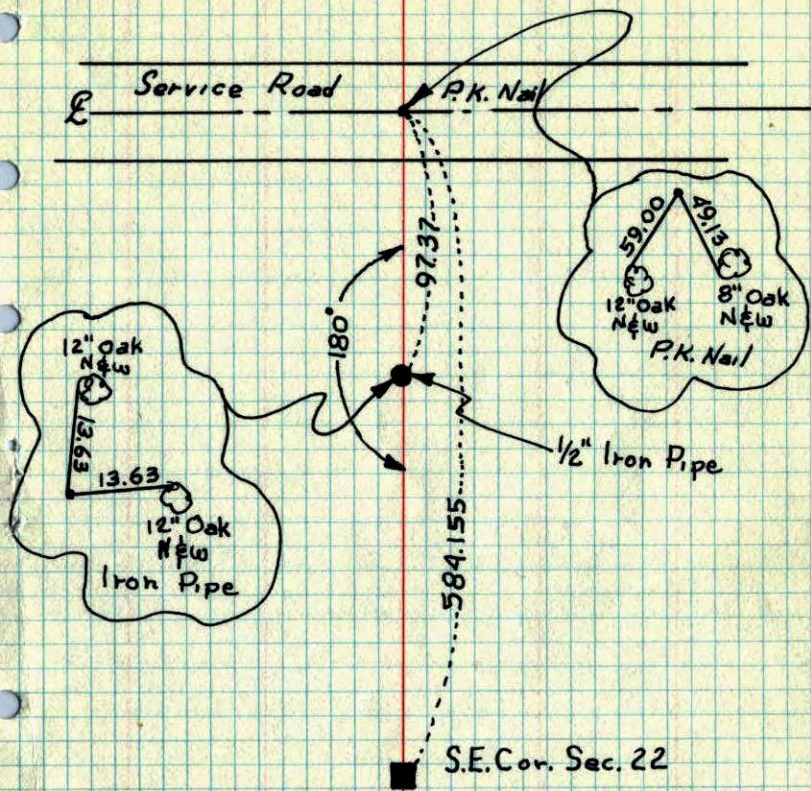 Service Road
P.K. Nail
℄
97.37
180°
59.00
49.13
12" Oak
N&W
8" Oak
N&W
P.K. Nail
12" Oak
N&W
13.63
13.63
12" Oak
N&W
Iron Pipe
1/2" Iron Pipe
584.155
S.E. Cor. Sec. 22